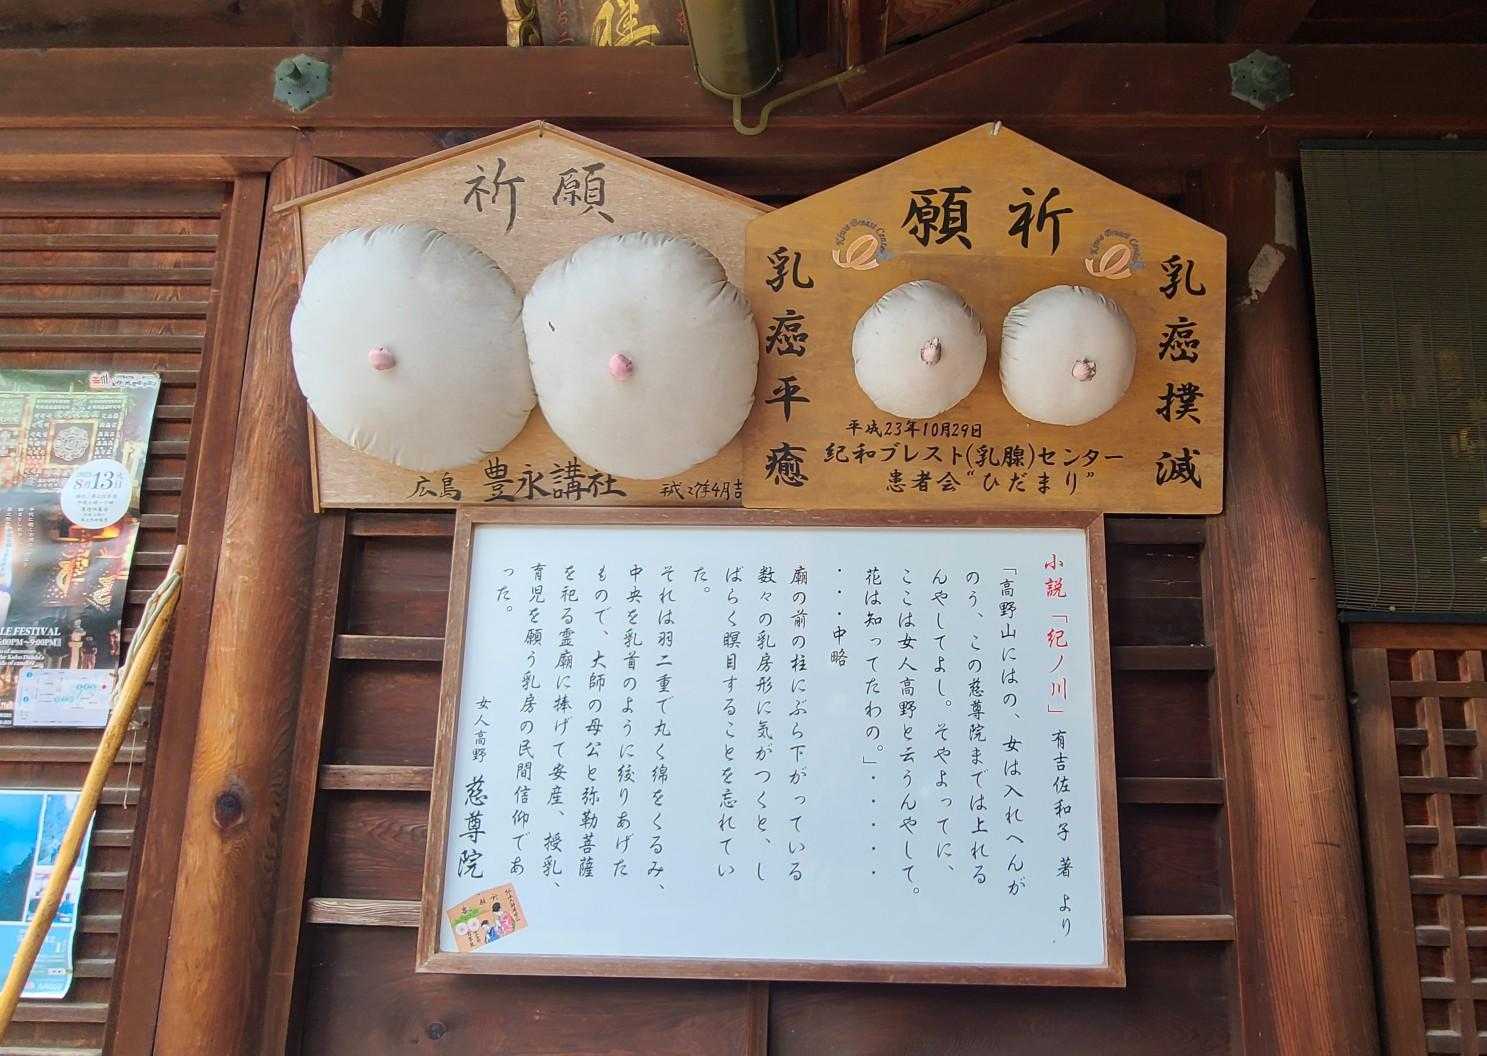 祈願
広島 豊永講社
願祈
乳癌平癒
乳癌撲滅
平成23年10月29日
紀和ブレスト(乳腺)センター
患者会“ひだまり”
小説「紀ノ川」 有吉佐和子 著 より
「高野山にはの、女は入れへんが
のう、この慈尊院までは上れる
んやしてよし。そやよってに、
ここは女人高野と云うんやして。
花は知ってたわの。」・・・・・
・・・中略
廟の前の柱にぶら下がっている
数々の乳房形に気がつくと、し
ばらく瞑目することを忘れてい
た。
それは羽二重で丸く綿をくるみ、
中央を乳首のように絞りあげた
もので、大師の母公と弥勒菩薩
を祀る霊廟に捧げて安産、授乳、
育児を願う乳房の民間信仰であ
った。
女人高野 慈尊院
8月13日
LE FESTIVAL